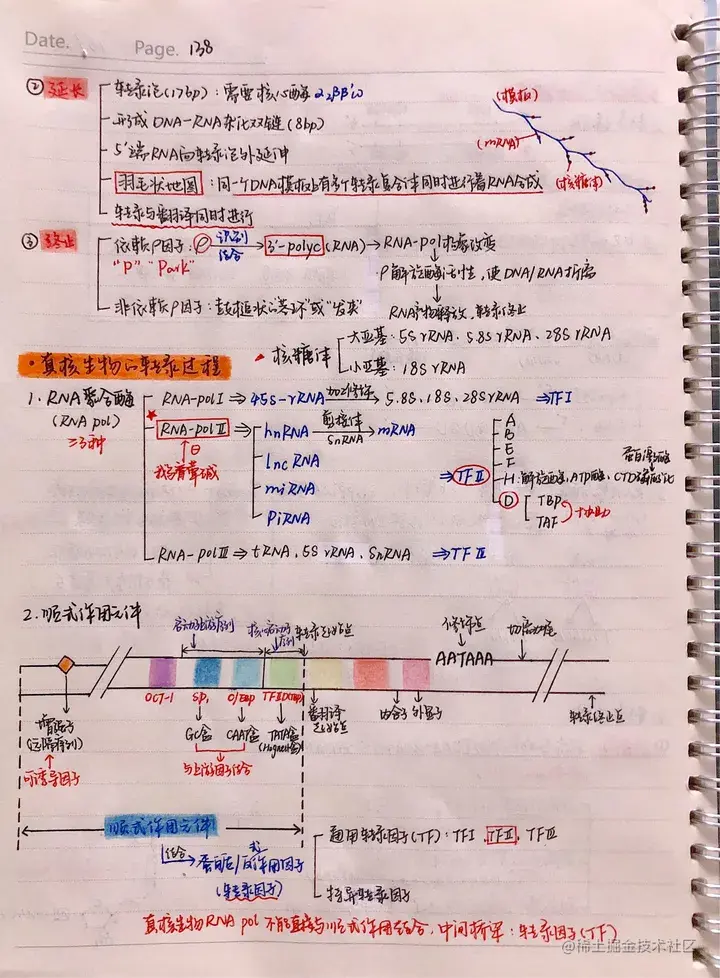 Date. Page. 138
② 延长
转录泡(17bp)：需要核心酶 α2ββ'ω
形成 DNA-RNA杂化双链(8bp)
5'端RNA向转录泡外延伸
羽毛状地图：同一个DNA模板上有多个转录复合体同时进行着RNA合成
转录与翻译同时进行
(模板)
(mRNA)
(核糖体)
③ 终止
依赖ρ因子：ρ 识别 结合 3'-polyc(RNA)→RNA-pol构象改变
"P" "Park"
ρ解旋酶活性，使DNA/RNA拆离
RNA产物释放，转录终止
非依赖ρ因子：鼓槌状的"茎环"或"发夹"
·真核生物的转录过程
核糖体
大亚基：5S rRNA、5.8S rRNA、28S rRNA
小亚基：18S rRNA
1. RNA聚合酶
(RNA pol)
≥3种
RNA-polⅠ⇒45S-rRNA 加工修饰 5.8S、18S、28S rRNA ⇒TFⅠ
★ RNA-polⅡ⇒
hnRNA 剪接体 SnRNA →mRNA
lnc RNA
miRNA
PiRNA
⊖
鹅膏蕈碱
⇒TFⅡ
A
B
E
F
H：解旋酶、ATP酶、CTD磷酸化
蛋白激酶
D
TBP
TAF
协助
RNA-polⅢ⇒tRNA、5S rRNA、SnRNA ⇒TFⅢ
2. 顺式作用元件
启动子上游序列
核心启动子序列
转录起始点
修饰点
AATAAA
切离加尾
OCT-1
SP1
C/EBP
TFⅡD(TBP)
增强子
(远隔序列)
可诱导因子
GC盒
CAAT盒
TATA盒
(Hogness盒)
与上游因子结合
翻译起始点
内含子
外显子
转录终止点
顺式作用元件
结合
蛋白质/反式作用因子
(转录因子)
通用转录因子(TF)：TFⅠ、TFⅡ、TFⅢ
特异转录因子
真核生物RNA pol 不能直接与顺式作用结合，中间桥梁：转录因子(TF)
@稀土掘金技术社区